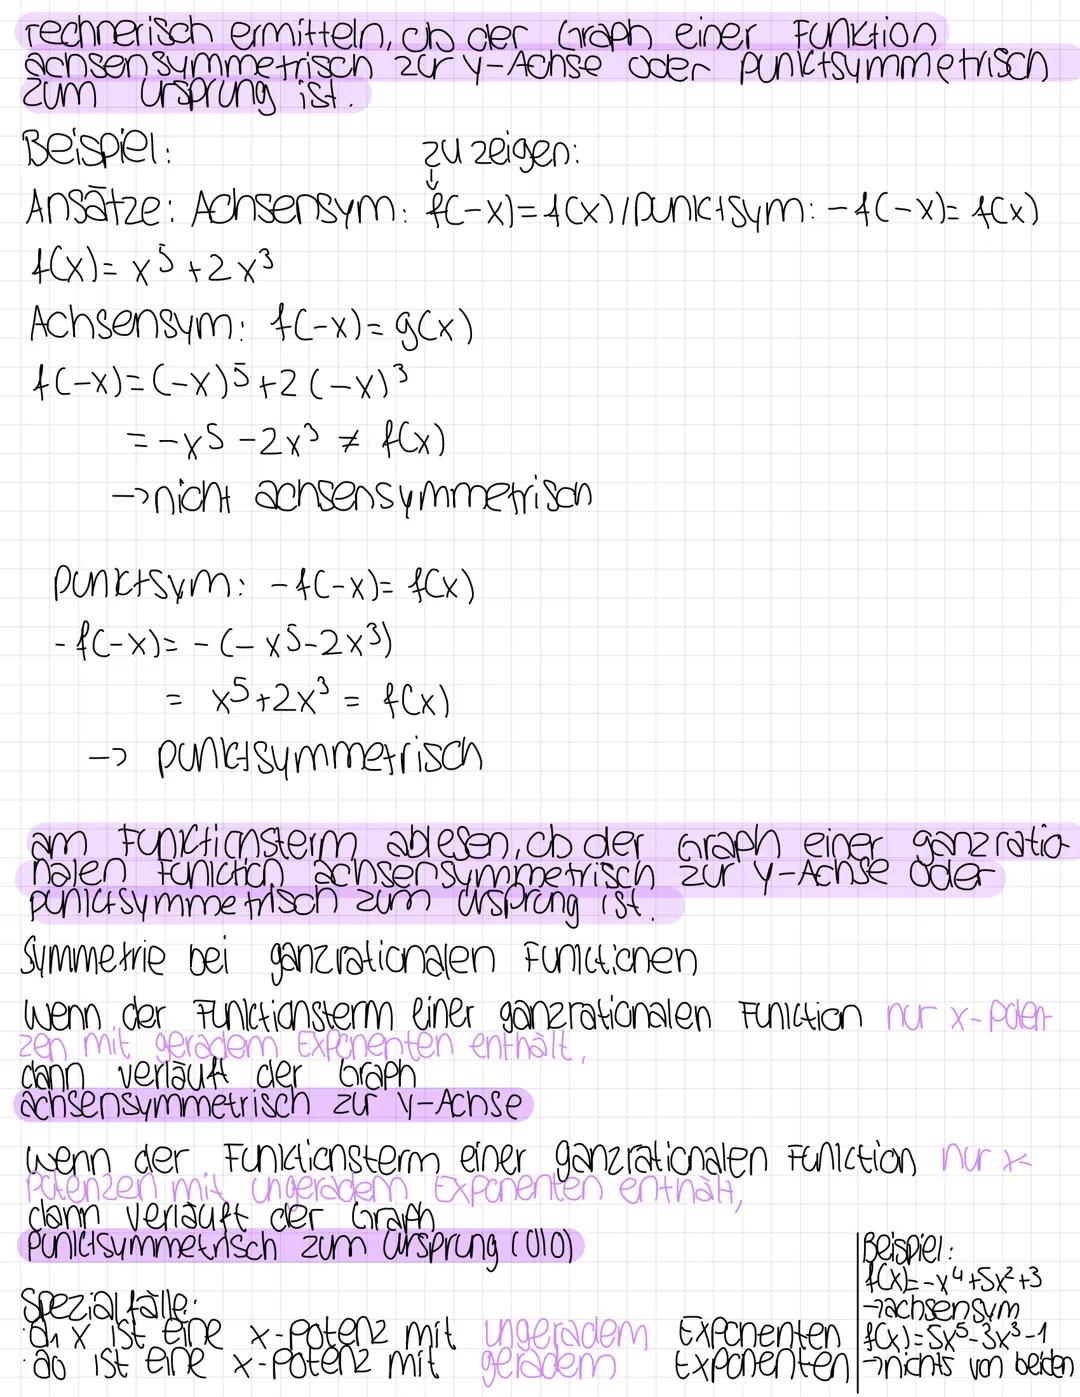 rechnerisch ermitteln, ob der Graph einer Funktion
achsensymmetrisch zur y-Achse oder punktsymmetrisch
zum Ursprung ist.
Beispiel:
zu zeigen:
Ansätze: Achsensym: f(-x)=f(x)/punktsym: -f(-x)= f(x)
f(x)= x⁵+2x³
Achsensym: f(-x)= g(x)
f(-x)=(-x)⁵+2(-x)³
= -x⁵-2x³ ≠ f(x)
→nicht achsensymmetrisch
punktsym: -f(-x)= f(x)
-f(-x)= -(-x⁵-2x³)
= x⁵+2x³ = f(x)
→ punktsymmetrisch
am Funktionsterm ablesen, ob der Graph einer ganzratio-
nalen Funktion achsensymmetrisch zur y-Achse oder
punktsymmetrisch zum Ursprung ist.
Symmetrie bei ganzrationalen Funktionen
Wenn der Funktionsterm einer ganzrationalen Funktion nur x-Poten-
zen mit geradem Exponenten enthält,
dann verläuft der Graph
achsensymmetrisch zur y-Achse
Wenn der Funktionsterm einer ganzrationalen Funktion nur x-
Potenzen mit ungeradem Exponenten enthält,
dann verläuft der Graph
punktsymmetrisch zum Ursprung (0|0)
Spezialfälle:
· a₁ x ist eine x-Potenz mit ungeradem Exponenten
· a₀ ist eine x-Potenz mit geradem Exponenten
Beispiel:
f(x)=-x⁴+5x²+3
→achsensym
f(x)=5x⁵-3x³-1
→nichts von beiden